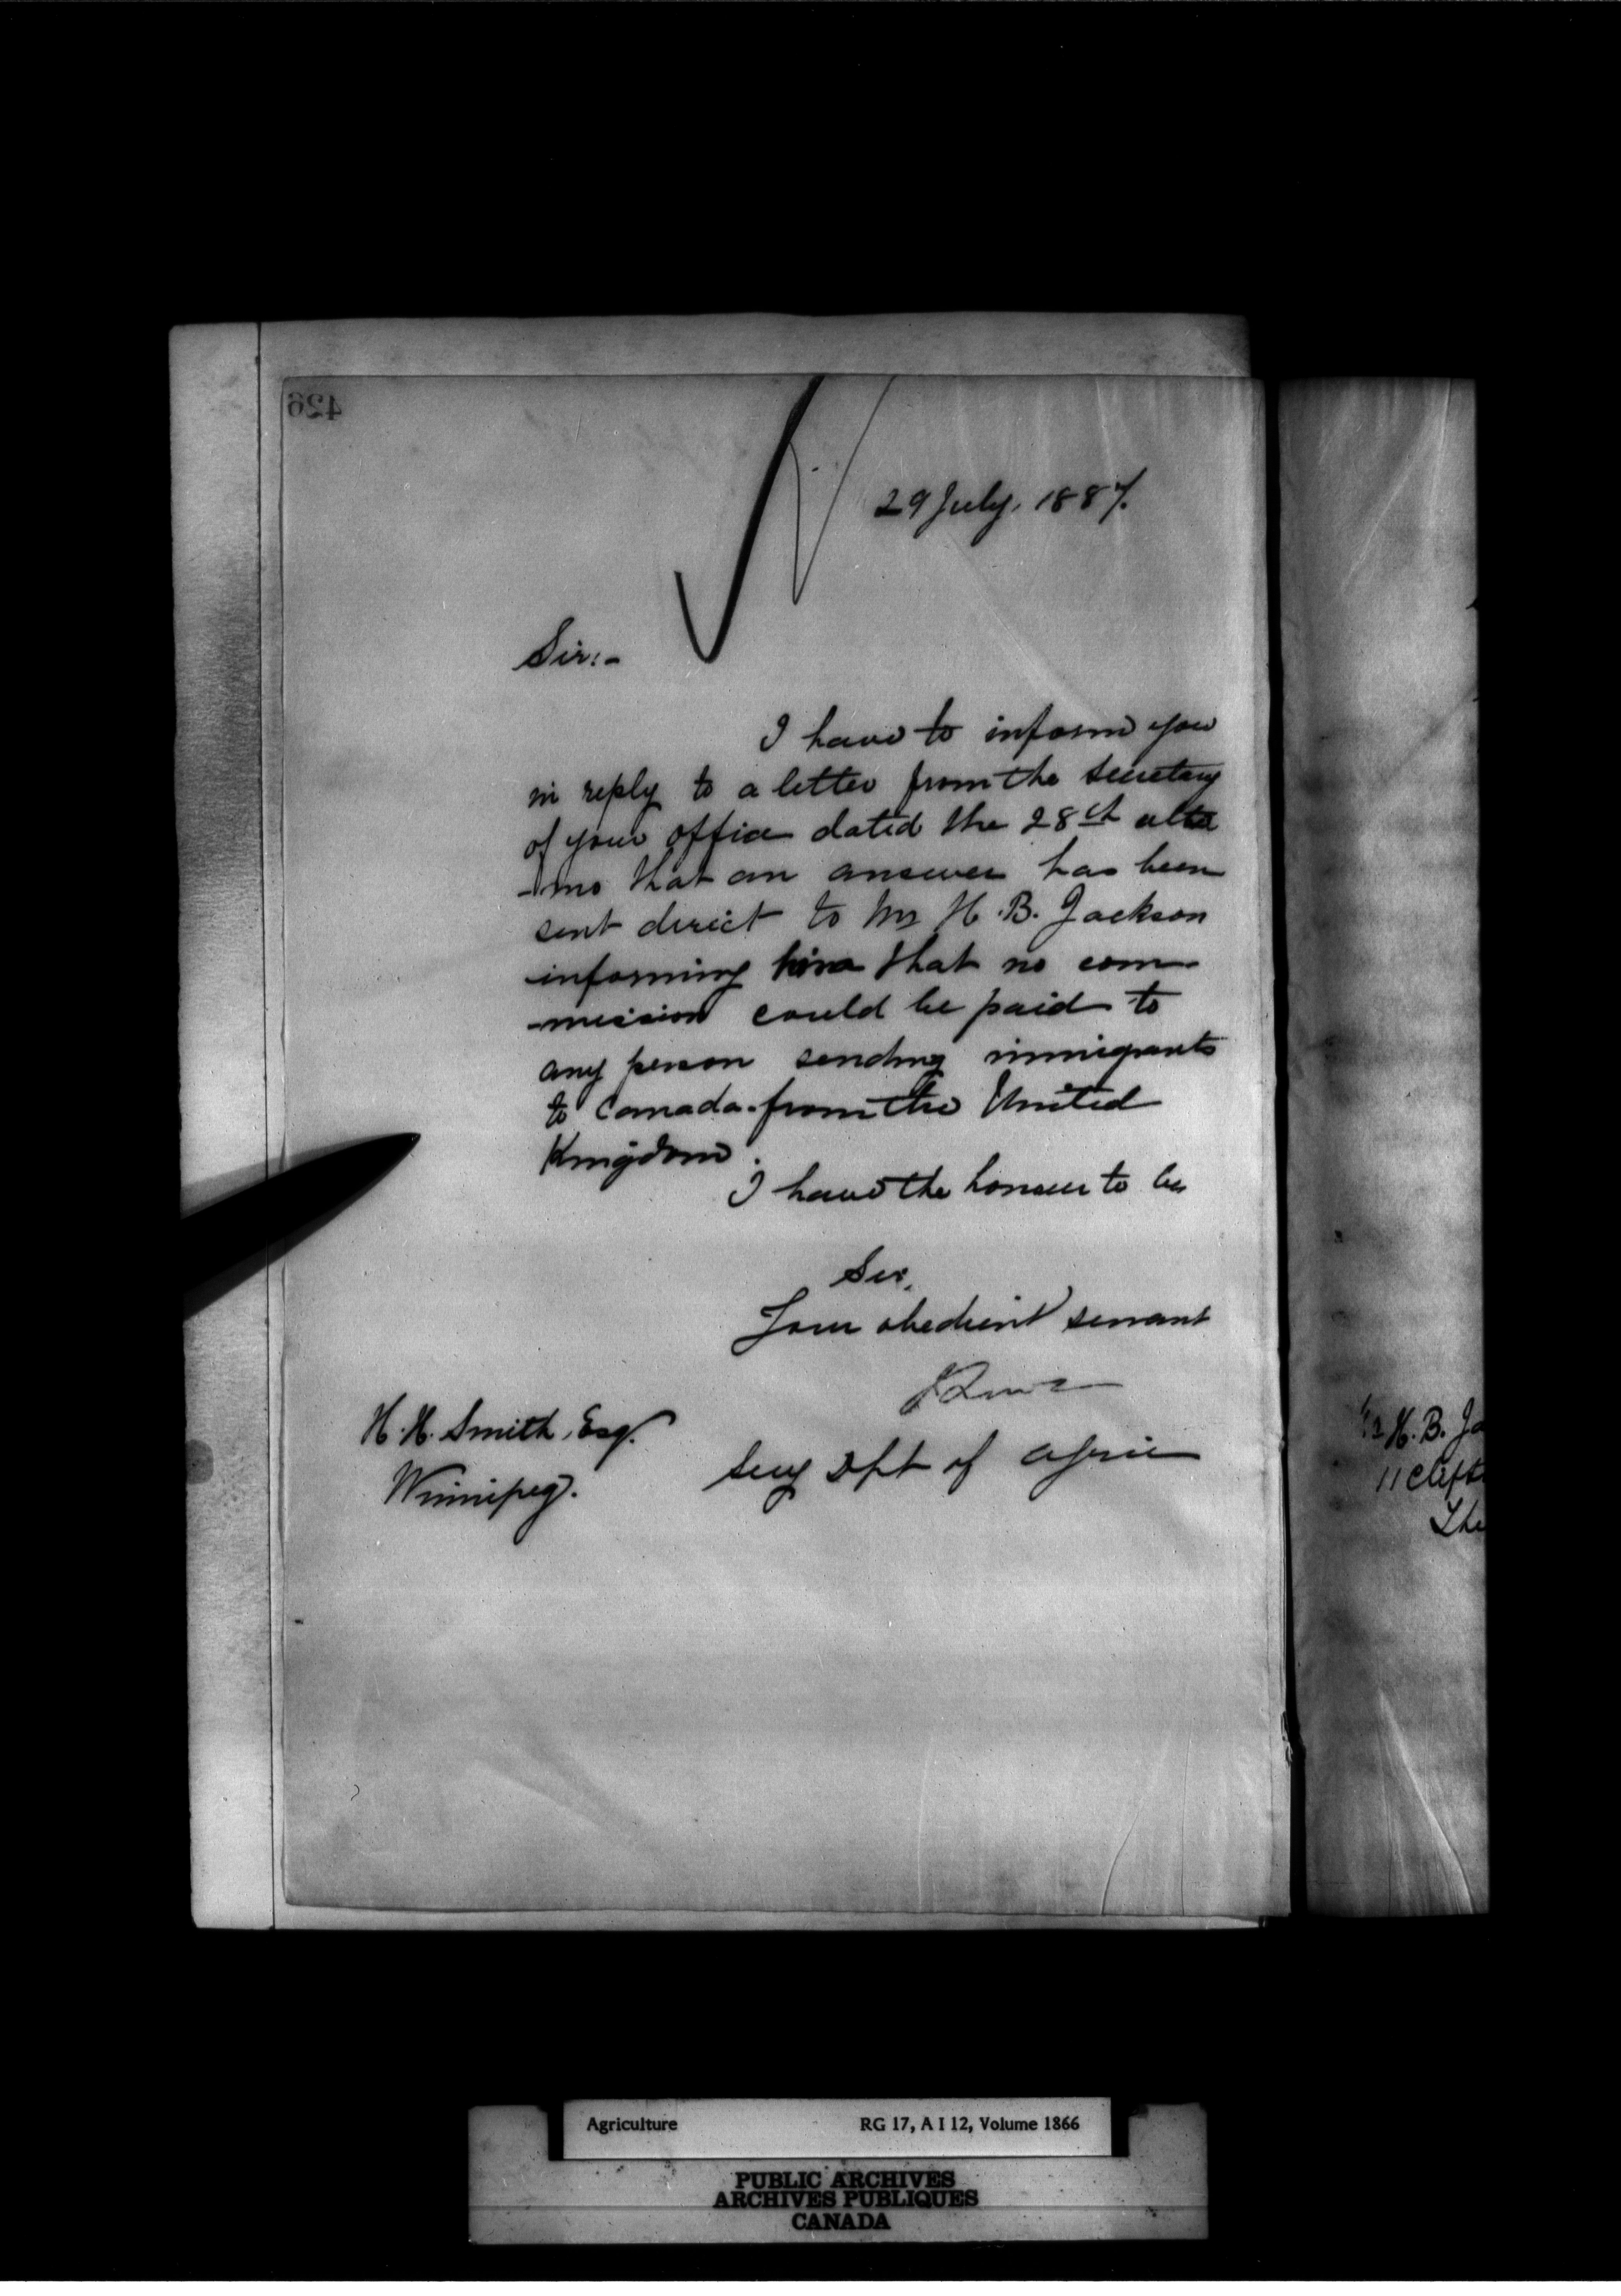 426
29 July, 1887.
Sir:-
I have to inform you
in reply to a letter from the Secretary
of your office dated the 28th ulti
-mo that an answer has been
sent direct to Mr H. B. Jackson
informing him that no com-
-mission could be paid to
any person sending immigrants
to Canada from the United
Kingdom.
I have the honour to be
Sir,
Your obedient servant
H. H. Smith, Esq.
Winnipeg.
Secy Dpt of Agric
H. B. Ja
11 Clift
The
Agriculture RG 17, A I 12, Volume 1866
PUBLIC ARCHIVES
ARCHIVES PUBLIQUES
CANADA